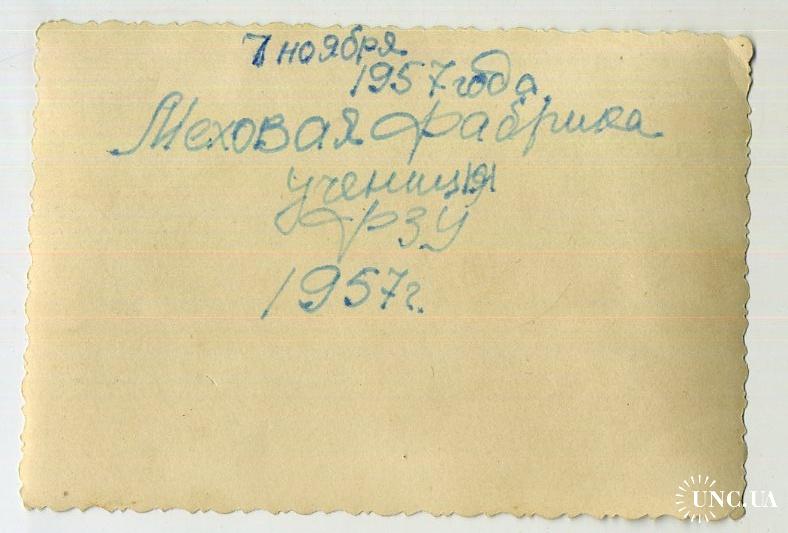 7 ноября
1957 года
Меховая фабрика
ученицы
ФЗУ
1957г.
UNC.UA